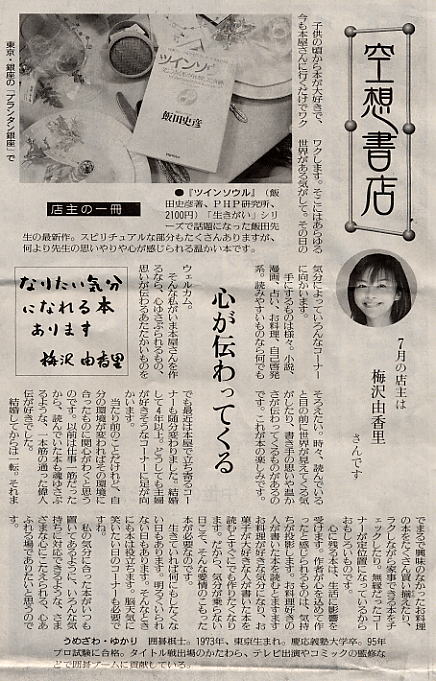 空想書店
子供の頃から本が大好きで、
今も本屋さんに行くだけでワク
ワクします。そこにはあらゆる
世界がある気がして。その日の
気分によっていろんなコーナー
に向かいます。
手にするものは様々。小説、
漫画、占い、お料理、自己啓発
系。読みやすいものなら何でも
ウェルカム。
そんな私がいま本屋さんを作
るなら、心ゆさぶられるもの、
思いが伝わるあたたかいものを
そろえたい。時々、読んでいる
と目の前に世界が見えてくる気
がしたり、書き手の思いや温か
さが伝わってくるものがあるの
です。これが本の楽しみです。
でも最近は本屋で立ち寄るコー
ナーも随分変わりました。結婚
して4年以上。どうしても主婦
が好きそうなコーナーに足が向
かいます。
当たり前のことだけれど、自
分の環境が変わればその環境に
合ったものに関心がわくと思う
のです。以前は仕事一筋だった
から、読んでいた本も魂ゆさぶ
るような、一本筋の通った偉人
伝が好きでした。
結婚してからは一転。それま
でまるで興味のなかったお料理
の本をたくさん買い揃えたり、
ラクしながら家事できる本をチ
ェックしたり。無縁だったコー
ナーが定位置になっているから
おもしろいものです。
心に残る本は、生活に影響を
受けます。作者が心を込めて作
ったと感じられるものは、気持
ちが投影します。お料理好きの
人が書いた本を読むとますます
お料理が好きな気分になり、お
菓子が大好きな人が書いた本を
読むとすぐにでも作りたくなり
ます。だから、気分が乗らない
日こそ、そんな愛情のこもった
本が必要なのです。
生きていれば何にもしたくな
い日もあります。明るくいられ
ない日もあります。そんなとき
にも本は役立ちます。脳天気に
笑いたい日のコーナーも必要で
すね。
私の気分に合った本がいつも
置いてあるように、いろんな気
持ちに対応できるような、さま
ざまな心にこたえられる、心あ
ふれる場でありたいと思うので
す。
心が伝わってくる
7月の店主は
梅沢由香里
さんです
東京・銀座の「アランタン銀座」で
ツインソウル
飯田史彦
店主の一冊
●『ツインソウル』（飯
田史彦著、PHP研究所、
2100円）「生きがい」シリ
ーズで話題になった飯田先
生の最新作。スピリチュアルな部分もたくさんありますが、
何より先生の思いやりや心が感じられる温かい本です。
なりたい気分
になれる本
あります
梅沢 由香里
うめざわ・ゆかり　囲碁棋士。1973年、東京生まれ。慶応義塾大学卒。95年
プロ試験に合格。タイトル戦出場のかたわら、テレビ出演やコミックの監修な
どで囲碁ブームに貢献している。